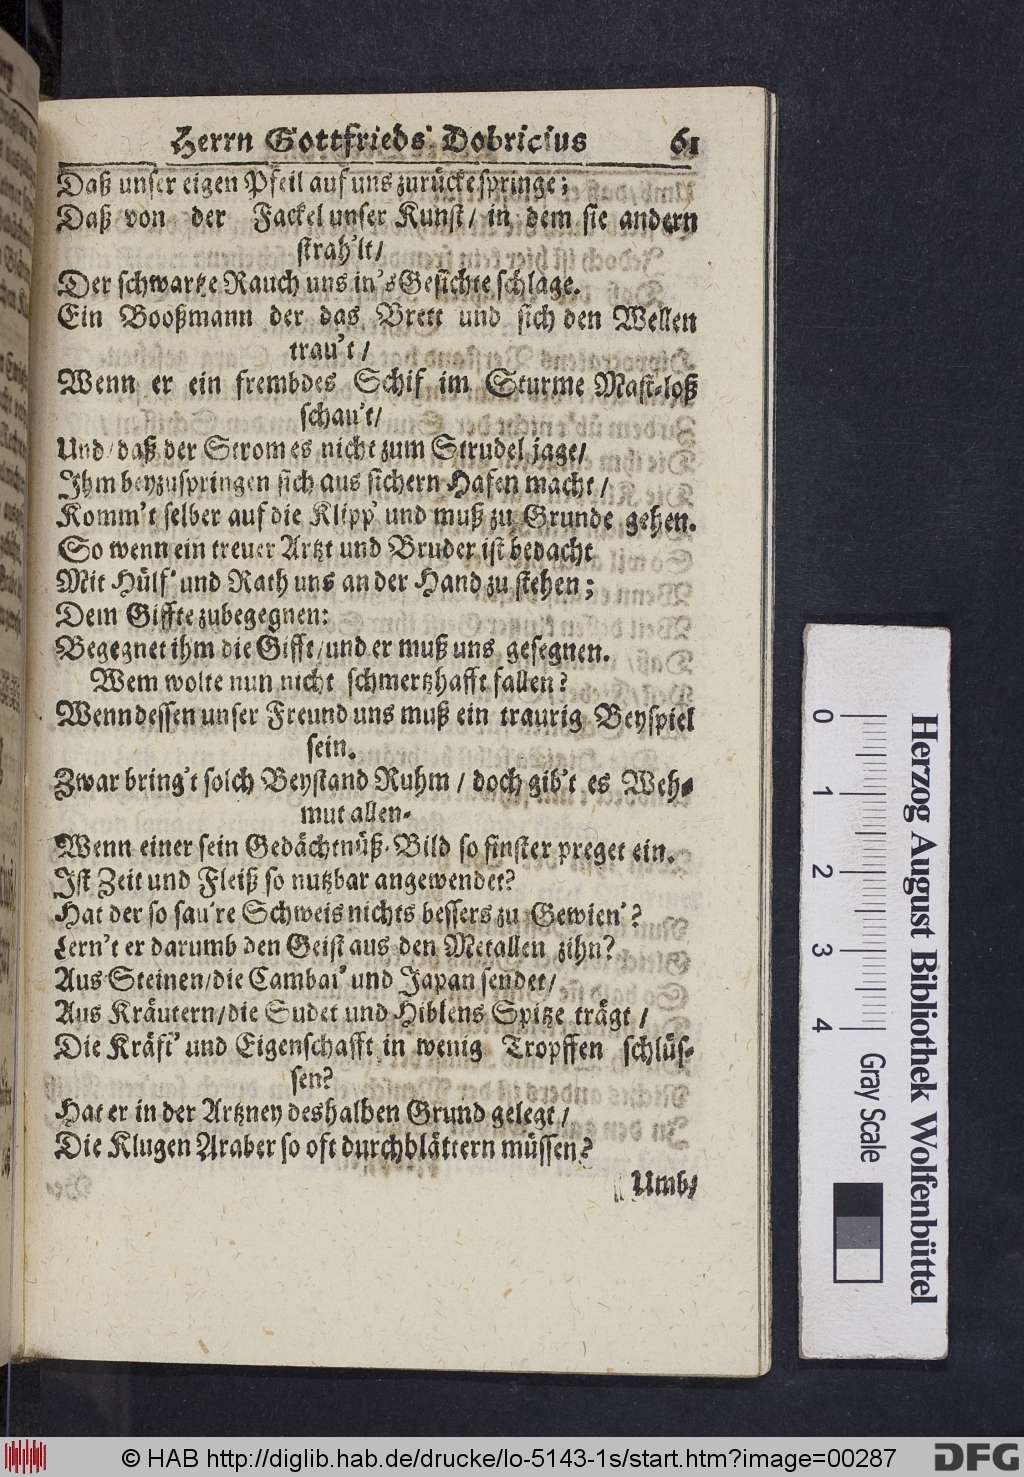 Herrn Gottfrieds Dobricius 61
Daß unser eigen Pfeil auf uns zurücke springe;
Daß von der Fackel unser Kunst/ in dem sie andern
strah'lt/
Der schwartze Rauch uns in's Gesichte schlage.
Ein Booßmann der das Brett und sich den Wellen
trau't/
Wenn er ein frembdes Schif im Sturme Mast-loß
schau't/
Und/ daß der Strom es nicht zum Strudel jage/
Ihm beyzuspringen sich aus sichern Hafen macht/
Komm't selber auf die Klipp' und muß zu Grunde gehen.
So wenn ein treuer Artzt und Bruder ist bedacht
Mit Hülf' und Rath uns an der Hand zu stehen;
Dem Giffte zubegegnen:
Begegnet ihm die Gifft/ und er muß uns gesegnen.
Wem wolte nun nicht schmertzhafft fallen?
Wenn dessen unser Freund uns muß ein traurig Beyspiel
sein.
Zwar bring't solch Beystand Ruhm/ doch gib't es Weh-
mut allen.
Wenn einer sein Gedächtnüß-Bild so finster preget ein.
Ist Zeit und Fleiß so nutzbar angewendet?
Hat der so sau're Schweis nichts bessers zu Gewien'?
Lern't er darumb den Geist aus den Metallen zihn?
Aus Steinen/ die Cambai' und Japan sendet/
Aus Kräutern/ die Sudet und Hiblens Spitze trägt/
Die Kräft' und Eigenschafft in wenig Tropffen schlüs-
sen?
Hat er in der Artzney deshalben Grund gelegt/
Die Klugen Araber so oft durchblättern müssen?
Umb/
Herzog August Bibliothek Wolfenbüttel
0 1 2 3 4
Gray Scale
© HAB http://diglib.hab.de/drucke/lo-5143-1s/start.htm?image=00287
DFG